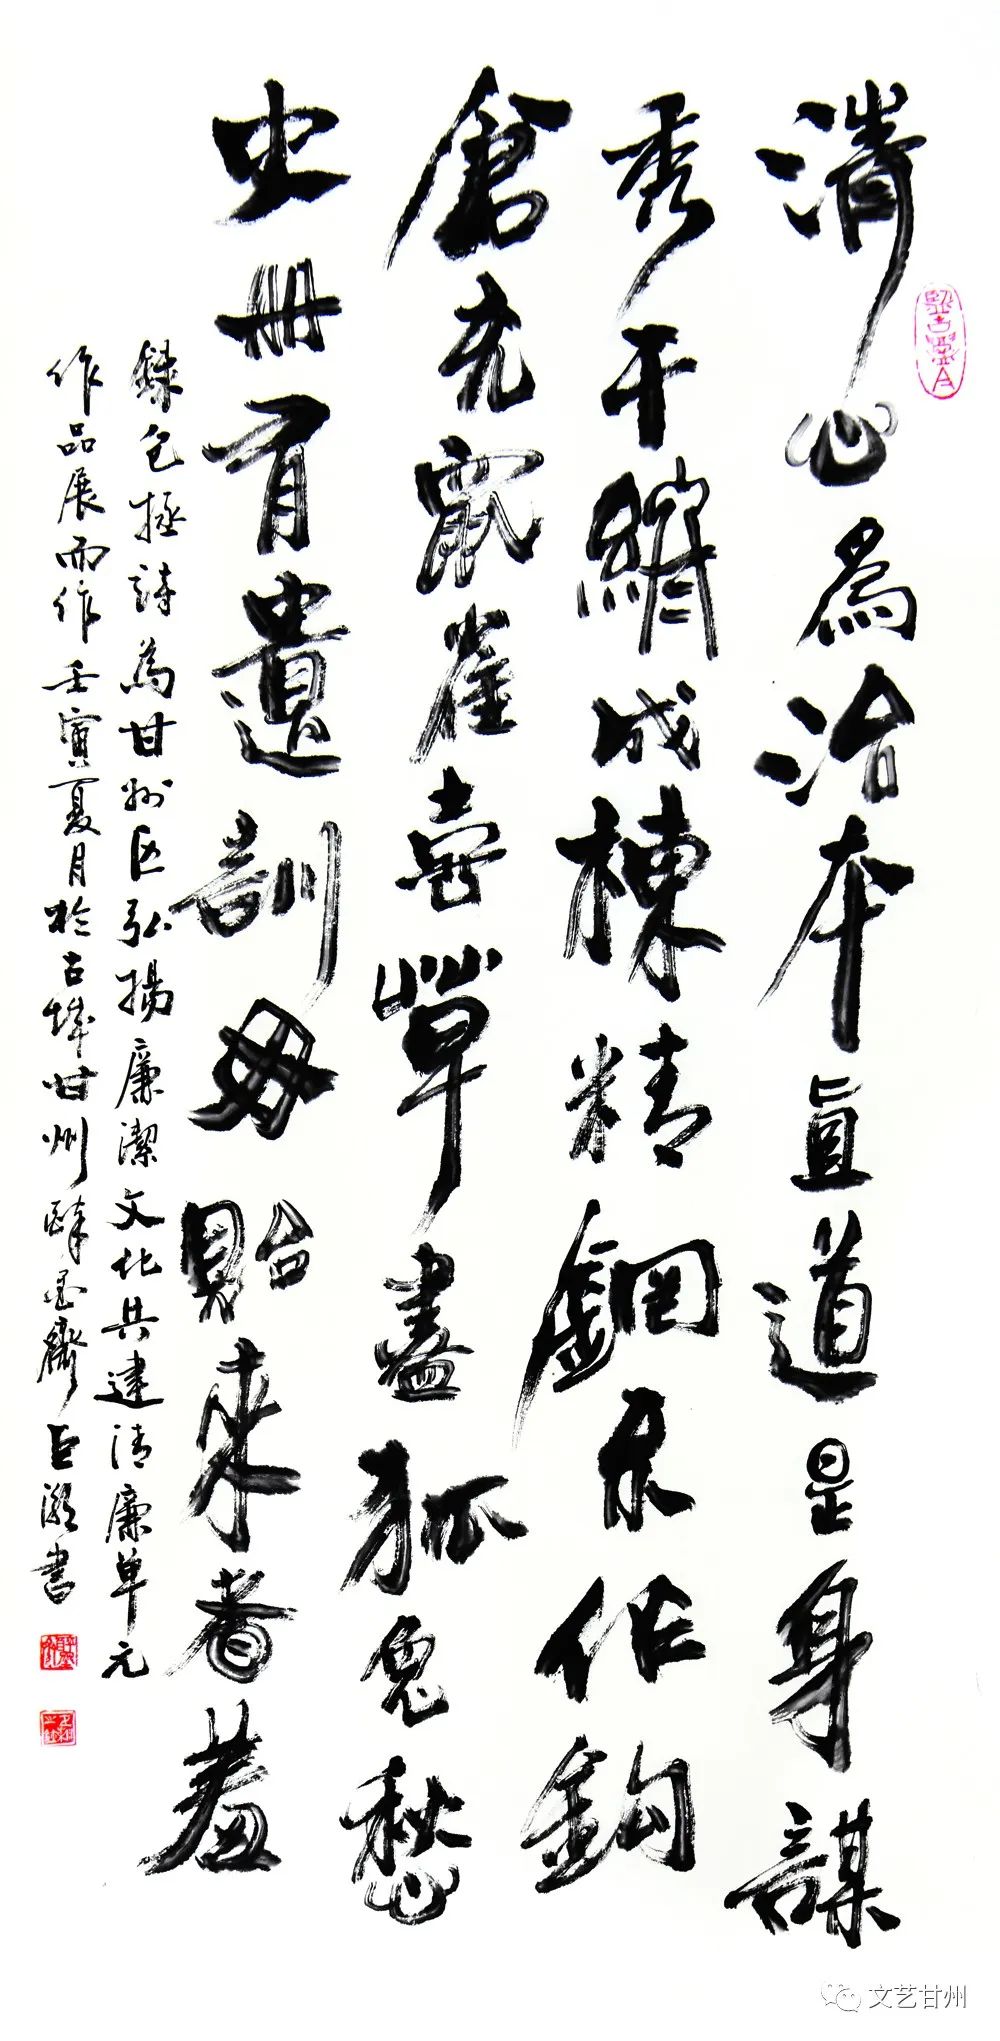 清心為治本直道是身謀
秀干成棟精鋼不作鉤
倉充鼠雀喜草盡狐兔愁
史冊有遺訓毋貽來者羞
錄包拯詩為甘州区弘揚廉潔文化共建清廉單元
作品展而作壬寅夏月於古城甘州墨齋書
文艺甘州